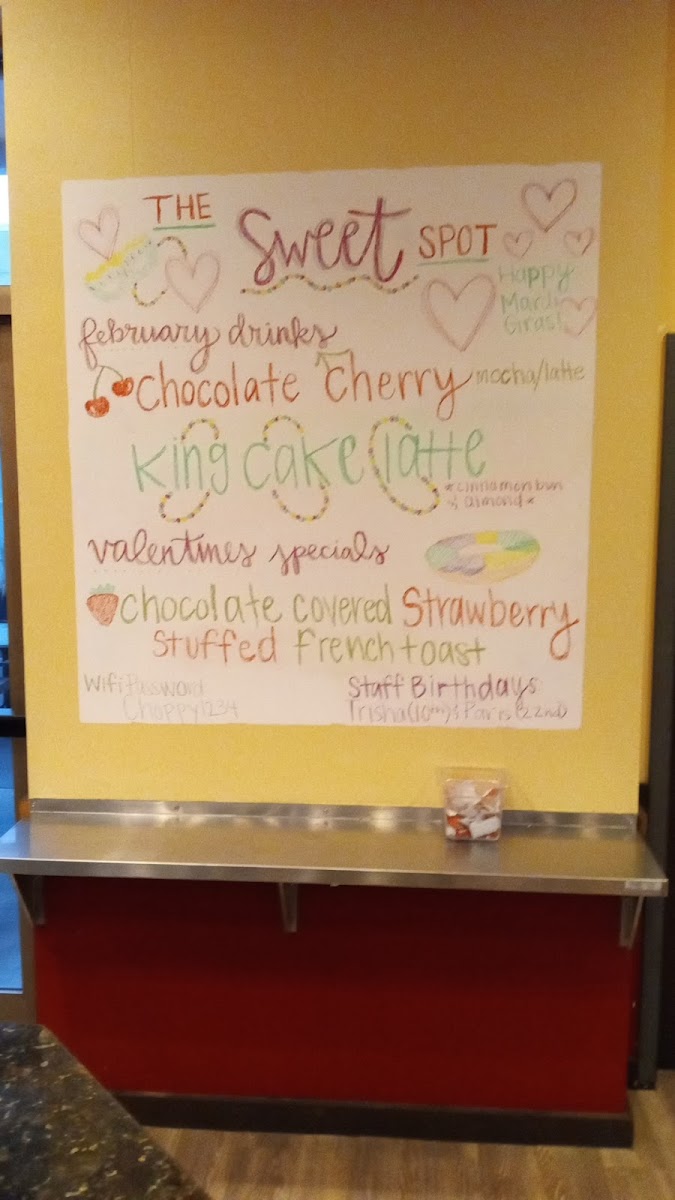 THE Sweet SPOT
Happy
Mardi
Gras!
february drinks
chocolate cherry mocha/latte
King cake latte
*cinnamon bun
& almond*
valentines specials
chocolate covered Strawberry
Stuffed French toast
Wifi Password
Choppy1234
Staff Birthdays
Trisha (10th) & Paris (22nd)